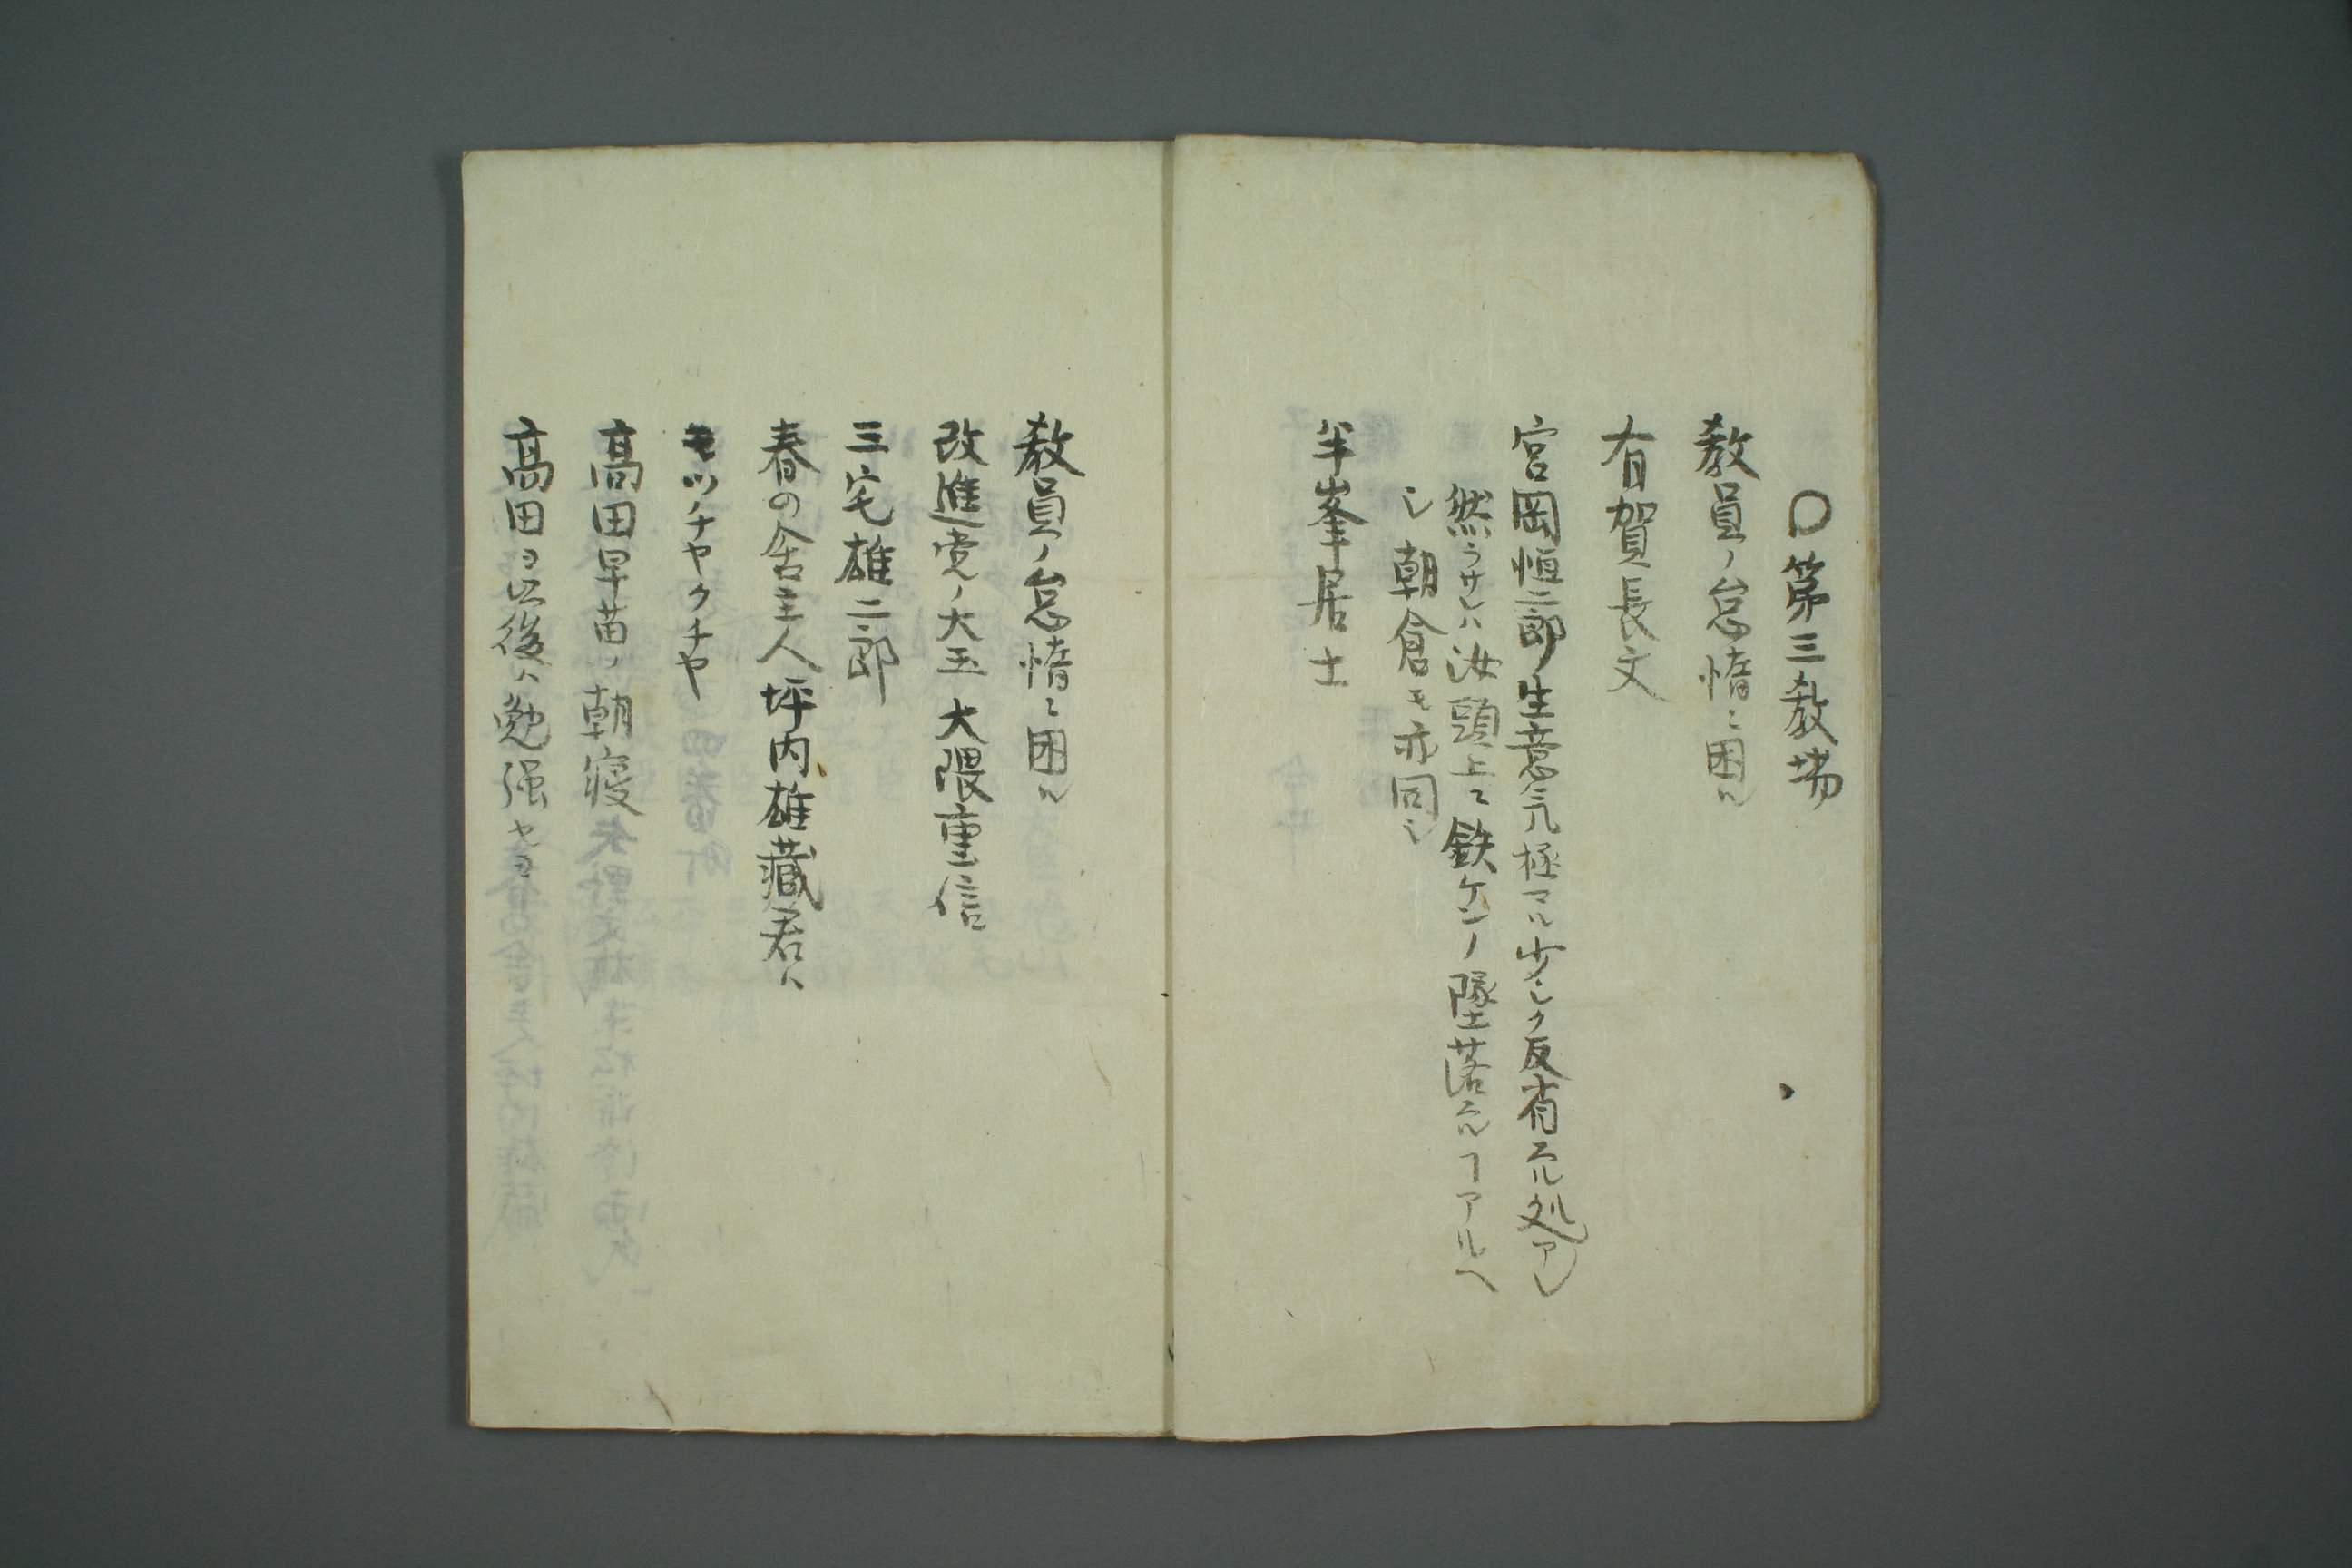 〇第三教場
教員ノ怠惰ニ困ル
有賀長文
宮岡恒二郎生意気極マル少シク反省スル処アレ
然ラサレハ汝頭上ニ鉄ケンノ墜落スルヿアルヘ
シ朝倉モ亦同シ
半峯居士
教員ノ怠惰ニ困ル
改進党ノ大玉大隈重信
三宅雄二郎
春の舎主人坪内雄蔵君ハ
モツノチヤクチヤ
高田早苗ノ朝寝
高田ヨ以後ハ勉强セヨ